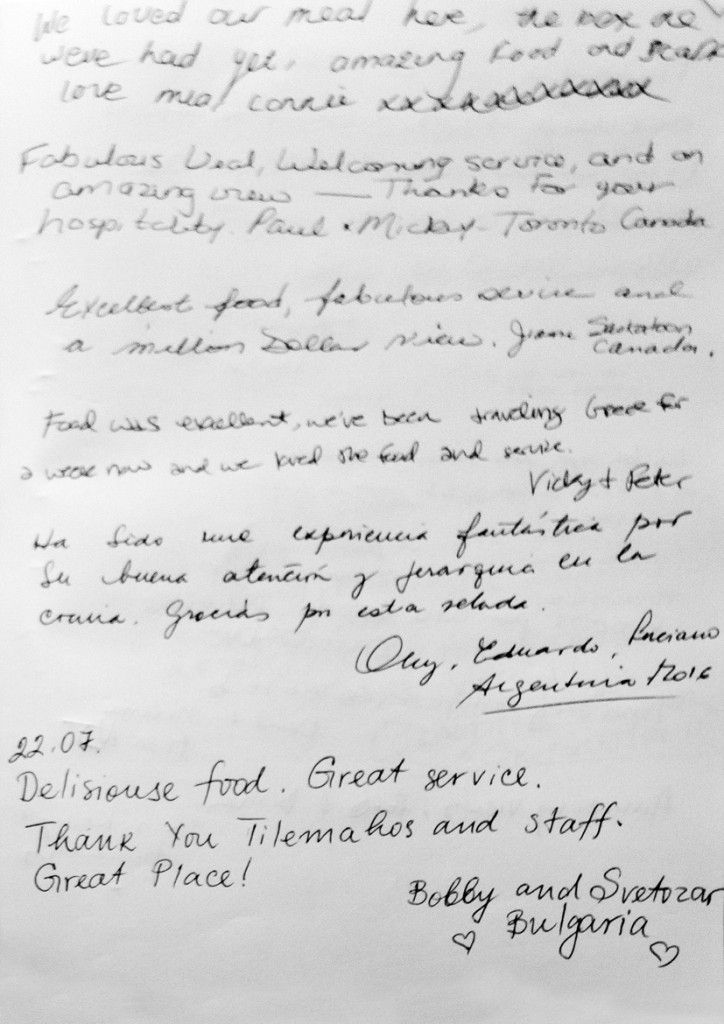 We loved our meal here, the box we
weve had yet, amazing food and
love connie xxxxxxxxxxxxx
Fabulous Veal, Welcoming service, and an
amazing view — Thanks for your
hospitality. Paul & Micky - Toronto Canada
Excellent food, fabulous service and
a million Dollar view. Saskatoon
Canada.
Food was excellent, we've been traveling Greece for
a week now and we loved the food and service.
Vicky + Peter
Ha sido una experiencia fantástica por
su buena atención y jerarquia en la
Gracias por esta velada.
Eduardo, Luciano
Argentina
22.07.
Delisiouse food. Great service.
Thank You Tilemahos and staff.
Great Place!
Bobby and Svetozar
Bulgaria